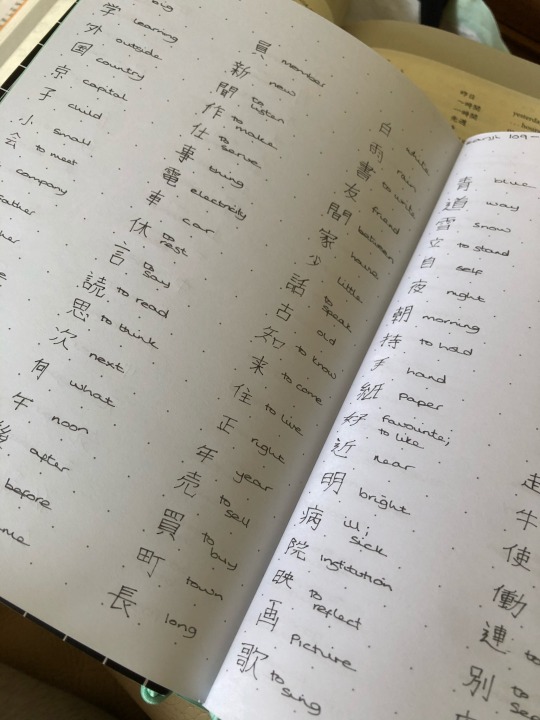 big
学 learning
外 outside
国 country
京 capital
子 child
小 small
会 to meet
company
father
何 what
次 next
思 to think
読 to read
言 to say
休 to rest
午 noon
後 after
before
員 member
新 new
聞 to listen
作 to make
仕 to serve
事 thing
電 electricity
車 car
白 white
雨 rain
書 to write
友 friend
間 between
家 house
少 little
話 to speak
古 old
知 to know
来 to come
住 to live
正 right
年 year
売 to sell
買 to buy
町 town
長 long
昨日 yesterday
一時間
一時間
先週
青 blue
道 way
雪 snow
立 to stand
自 self
夜 night
朝 morning
持 to hold
手 hand
紙 paper
好 favourite; to like
近 near
明 bright
病 ill; sick
院 institution
映 to reflect
画 picture
歌 to sing
走
牛
使
働
連 to
別 to